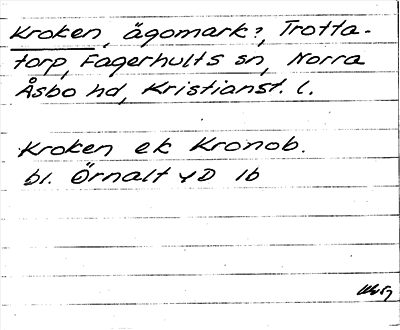 Kroken, ägomark?, Trotta-
torp, Fagerhults sn, Norra
Åsbo hd, Kristianst. l.
Kroken ek Kronob.
bl. Örnalt 4D 1b